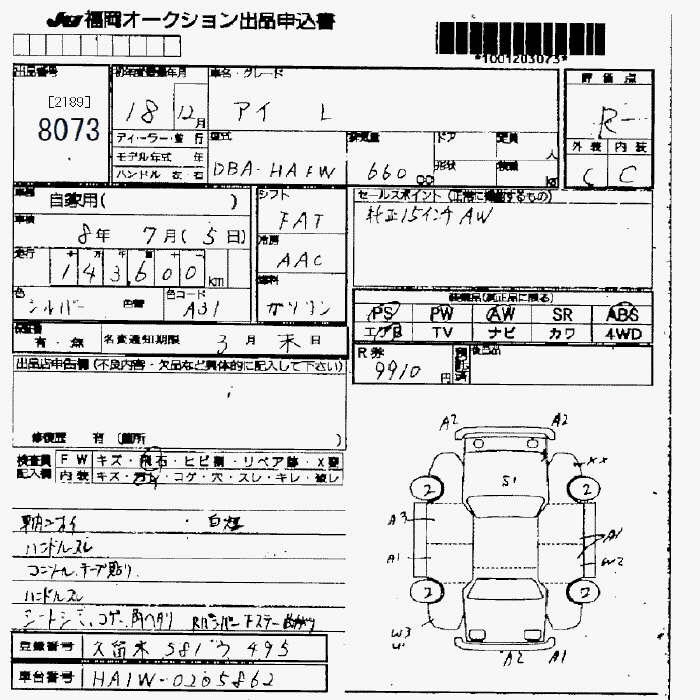 JU福岡オークション出品申込書
*1001203073*
出品番号
[2189]
8073
初年度登録年月
18 12月
車名・グレード
アイ L
評価点
R
外装 内装
C C
ディーラー・並行
モデル年式 年
ハンドル 左・右
型式
DBA-HA1W
排気量
660 cc
ドア
形状
定員
人
積載
kg
車歴
自家用( )
車検
8年 7月(5日)
走行
143,600 km
色
シルバー 色替
色コード
A31
シフト
FAT
冷房
AAC
燃料
ガソリン
セールスポイント(正常に機能するもの)
純正15インチAW
装備品(純正品に限る)
PS PW AW SR ABS
エアB TV ナビ カワ 4WD
R券
9910円
預託済
後日品
有・無
名変通知期限 3月末日
出品店申告欄(不良内容・欠品など具体的に記入して下さい)
修復歴 有(箇所 )
検査員記入欄
FW キズ・飛石・ヒビ割・リペア跡・X要
内装 キズ・汚れ・コゲ・穴・スレ・キレ・破レ
ハンドルスレ
ハンドルスレ
登録番号 久留米 581 ウ 495
車台番号 HA1W-0205862
A2 A2
S1
XX
2 2
A3
A1
A1
W2
2 2
W3
A2 A1